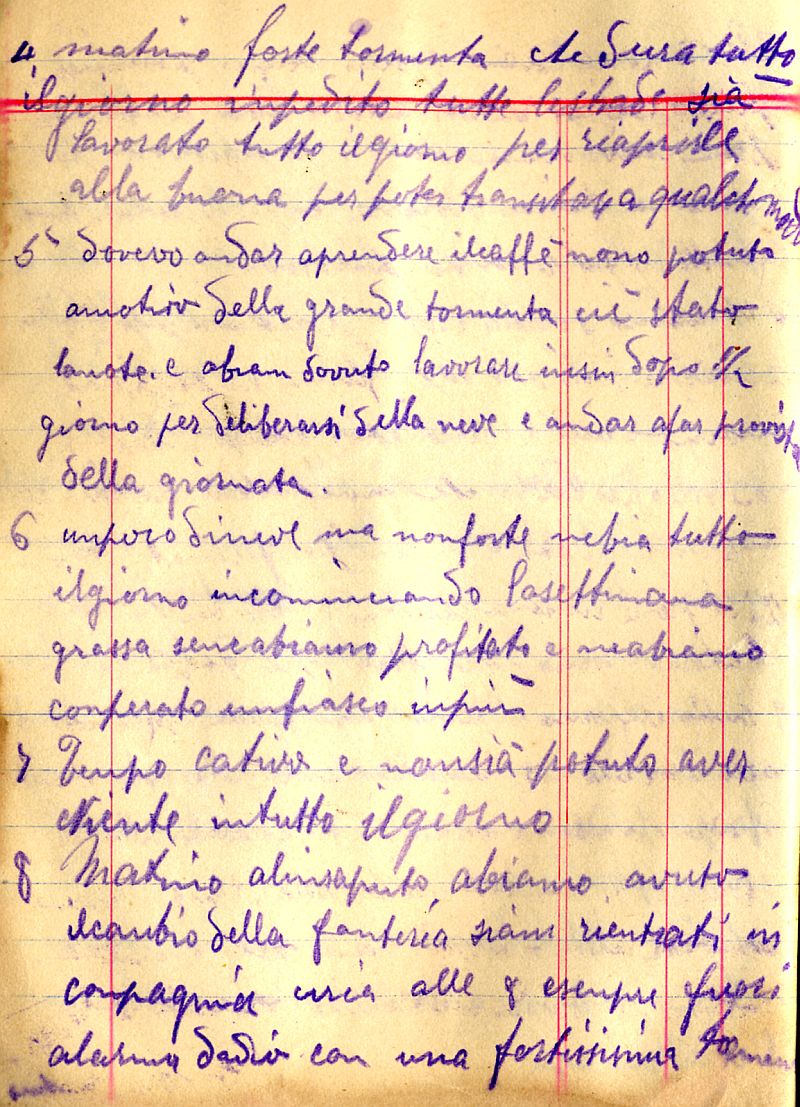 4 matino forte tormenta che dura tutto
il giorno inpedito tutte lestrade sià
lavorato tutto ilgiorno per riaprirle
alla buona per poter transitare a qualche modo
5 dovevo andar aprendere ilcaffè nono potuto
amotivo della grande tormenta ciè stato
lanote. e abiam dovuto lavorare insin dopo ½
giorno per deliberarsi della neve e andar afar provista
della giornata.
6 unpoco dineve ma nonforte nebia tutto
ilgiorno incominciando lasettimana
grassa sencabiamo profitato e neabiamo
conperato unfiasco inpiù
7 Tenpo cativo e nonsià potuto aver
Niente intutto ilgiorno
8 Matino alinsaputo abiamo avuto
ilcanbio della fanteria siam rientrati in
conpagnia circa alle 8 esenpre fuori
con una fortissima tormenta